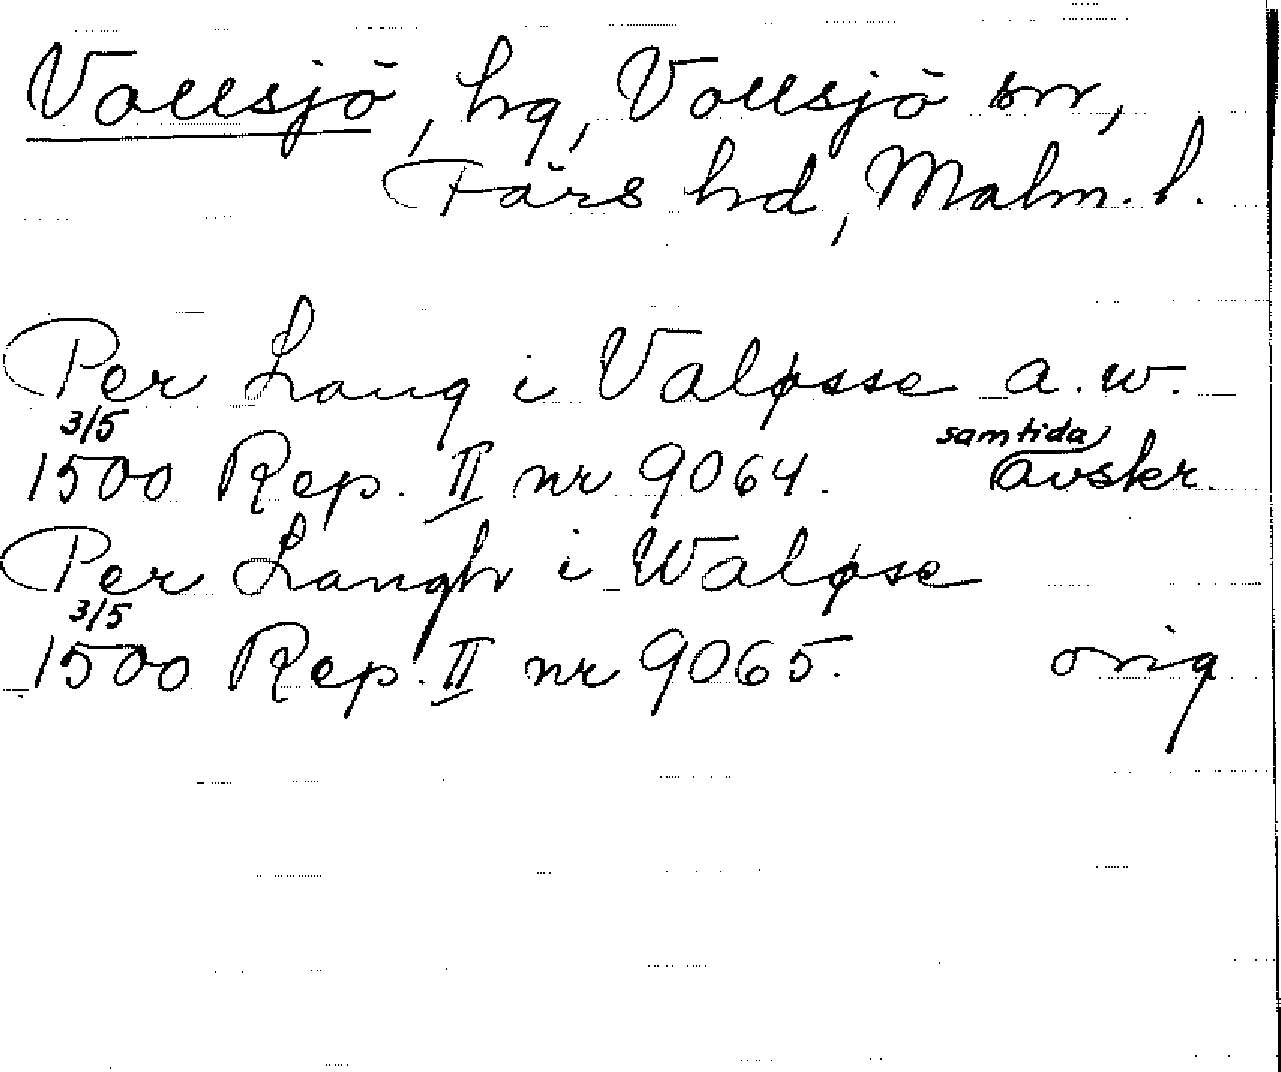 Vollsjö, hg, Vollsjö sn,
Färs hd, Malm. l.
Per Lang i Valøsse a.w.
3/5 samtida
1500 Rep. II nr 9064. avskr.
Per Langh i Waløse
3/5
1500 Rep. II nr 9065. orig